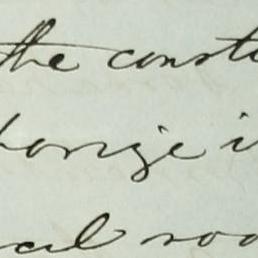 the const
horize i
cal roo